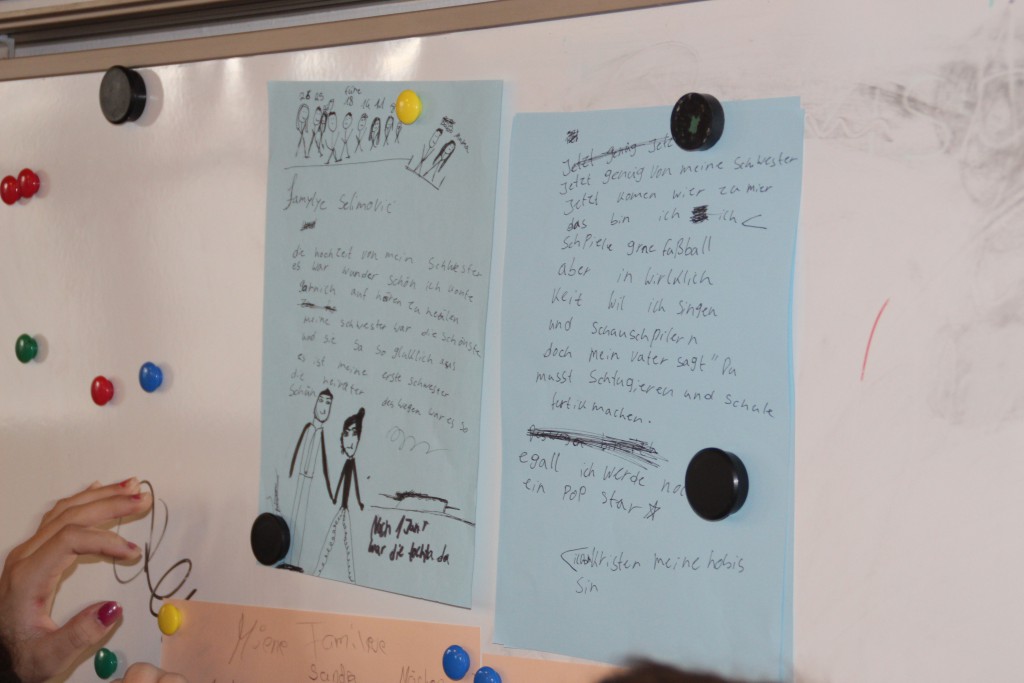 26 25 18 14 11
famylye Selimovic
die hochzeit von mein Schwester
es war wunder schön ich konte
garnich auf hören zu heulen
meine schwester war die schönste
und sie sa so glücklich aus
es ist meine erste schwester
die heiratet deswegen war es so
schön
Nach 1 Jahr
war die tochta da
Jetzt genug Jetz
Jetzt genug von meine Schwester
Jetzt komen wier zu mier
das bin ich ich
Schpiele grne fußball
aber in wirklich
keit wil ich singen
und schauschpilern
doch mein vater sagt "Du
musst Schtugieren und schule
fertik machen.
egall ich werde noc
ein PoP Star
meine hobis
sin
Miene Familie